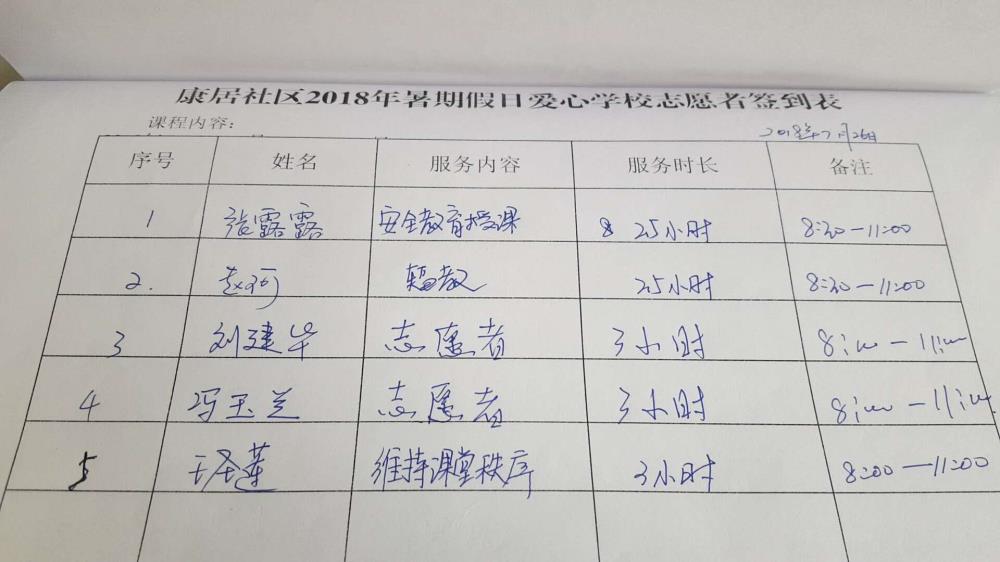 康居社区2018年暑期假日爱心学校志愿者签到表
课程内容: 2018年7月26日
序号 姓名 服务内容 服务时长 备注
1 张露露 安全教育授课 2.5小时 8:30-11:00
2. 赵珂 辅教 2.5小时 8:30-11:00
3 刘建华 志愿者 3小时 8:00-11:00
4 冯玉兰 志愿者 3小时 8:00-11:00
5 王莲 维持课堂秩序 3小时 8:00-11:00